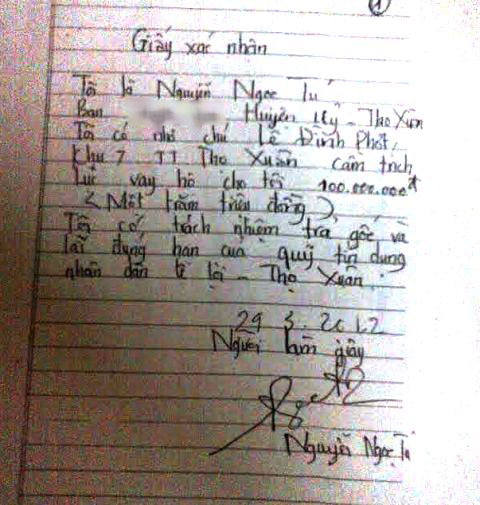 1
Giấy xác nhận
Tôi là Nguyễn Ngọc Tú
Ban Huyện uỷ - Thọ Xuân
Tôi có nhờ chú Lê Đình Phốt,
Khu 7 TT Thọ Xuân cầm trích
lục vay hộ cho tôi 100.000.000đ
(Một trăm triệu đồng),
Tôi có trách nhiệm trả gốc và
lãi đúng hạn của quỹ tín dụng
nhân dân tề lợi - Thọ Xuân.
29.3.2012
Người làm giấy
Nguyễn Ngọc Tú